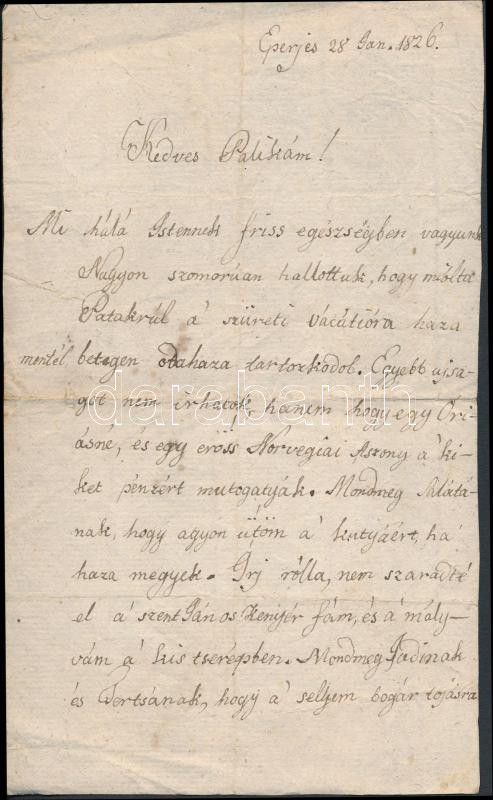 Eperjes 28 Jan. 1826.
Kedves Palikám!
Mi hálá Istennek friss egészségben vagyunk
Nagyon szomorúan hallottuk, hogy miólta
Patakrúl a' szüreti vacátióra haza
mentél betegen odahaza tartozkodol. Egyebb ujsa-
got nem irhatok, hanem hogy egy Ori-
ásné, és egy eröss Norvegiai Aszony a' ki-
ket pénzért mutogatyák. Mondmeg
nak, hogy agyon ütöm a' kutyáért, ha
haza megyek. Irj rólla, nem szaradté
el a' szent János kenyér fám, és a' mály-
vám a' kis tserepben. Mondmeg Fádinak
és Tertsának, hogy a' selyem bogár tojásra
darabanth